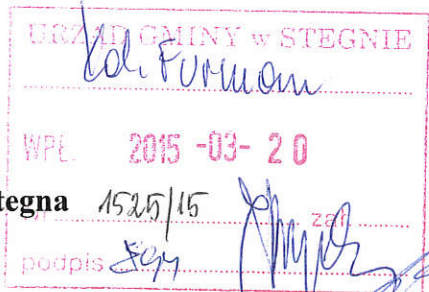 URZĄD GMINY w STEGNIE
WPŁ. 2015 -03- 20
tegna 1525/15 zał.
podpis